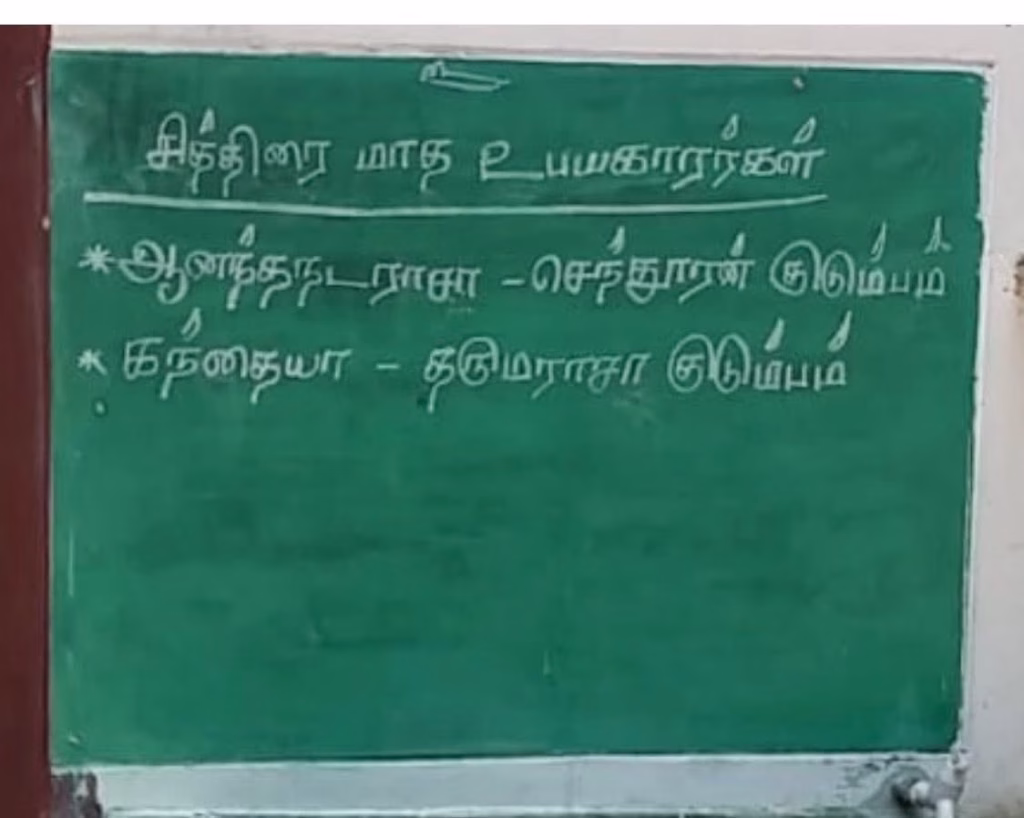 உ
சித்திரை மாத உபயகாரர்கள்
* ஆனந்தநடராசா - செந்தூரன் குடும்பம்
* கந்தையா - தருமராசா குடும்பம்